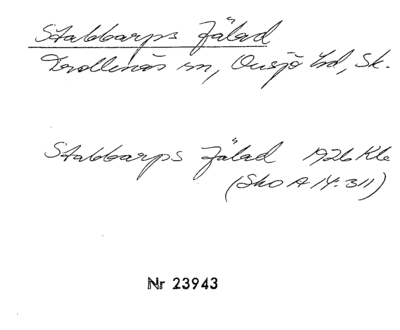 Stabbarps Fälad
Trollenäs sn, Onsjö hd, Sk.
Stabbarps Fälad 1926 Kle
(Sko A 14:311)
Nr 23943